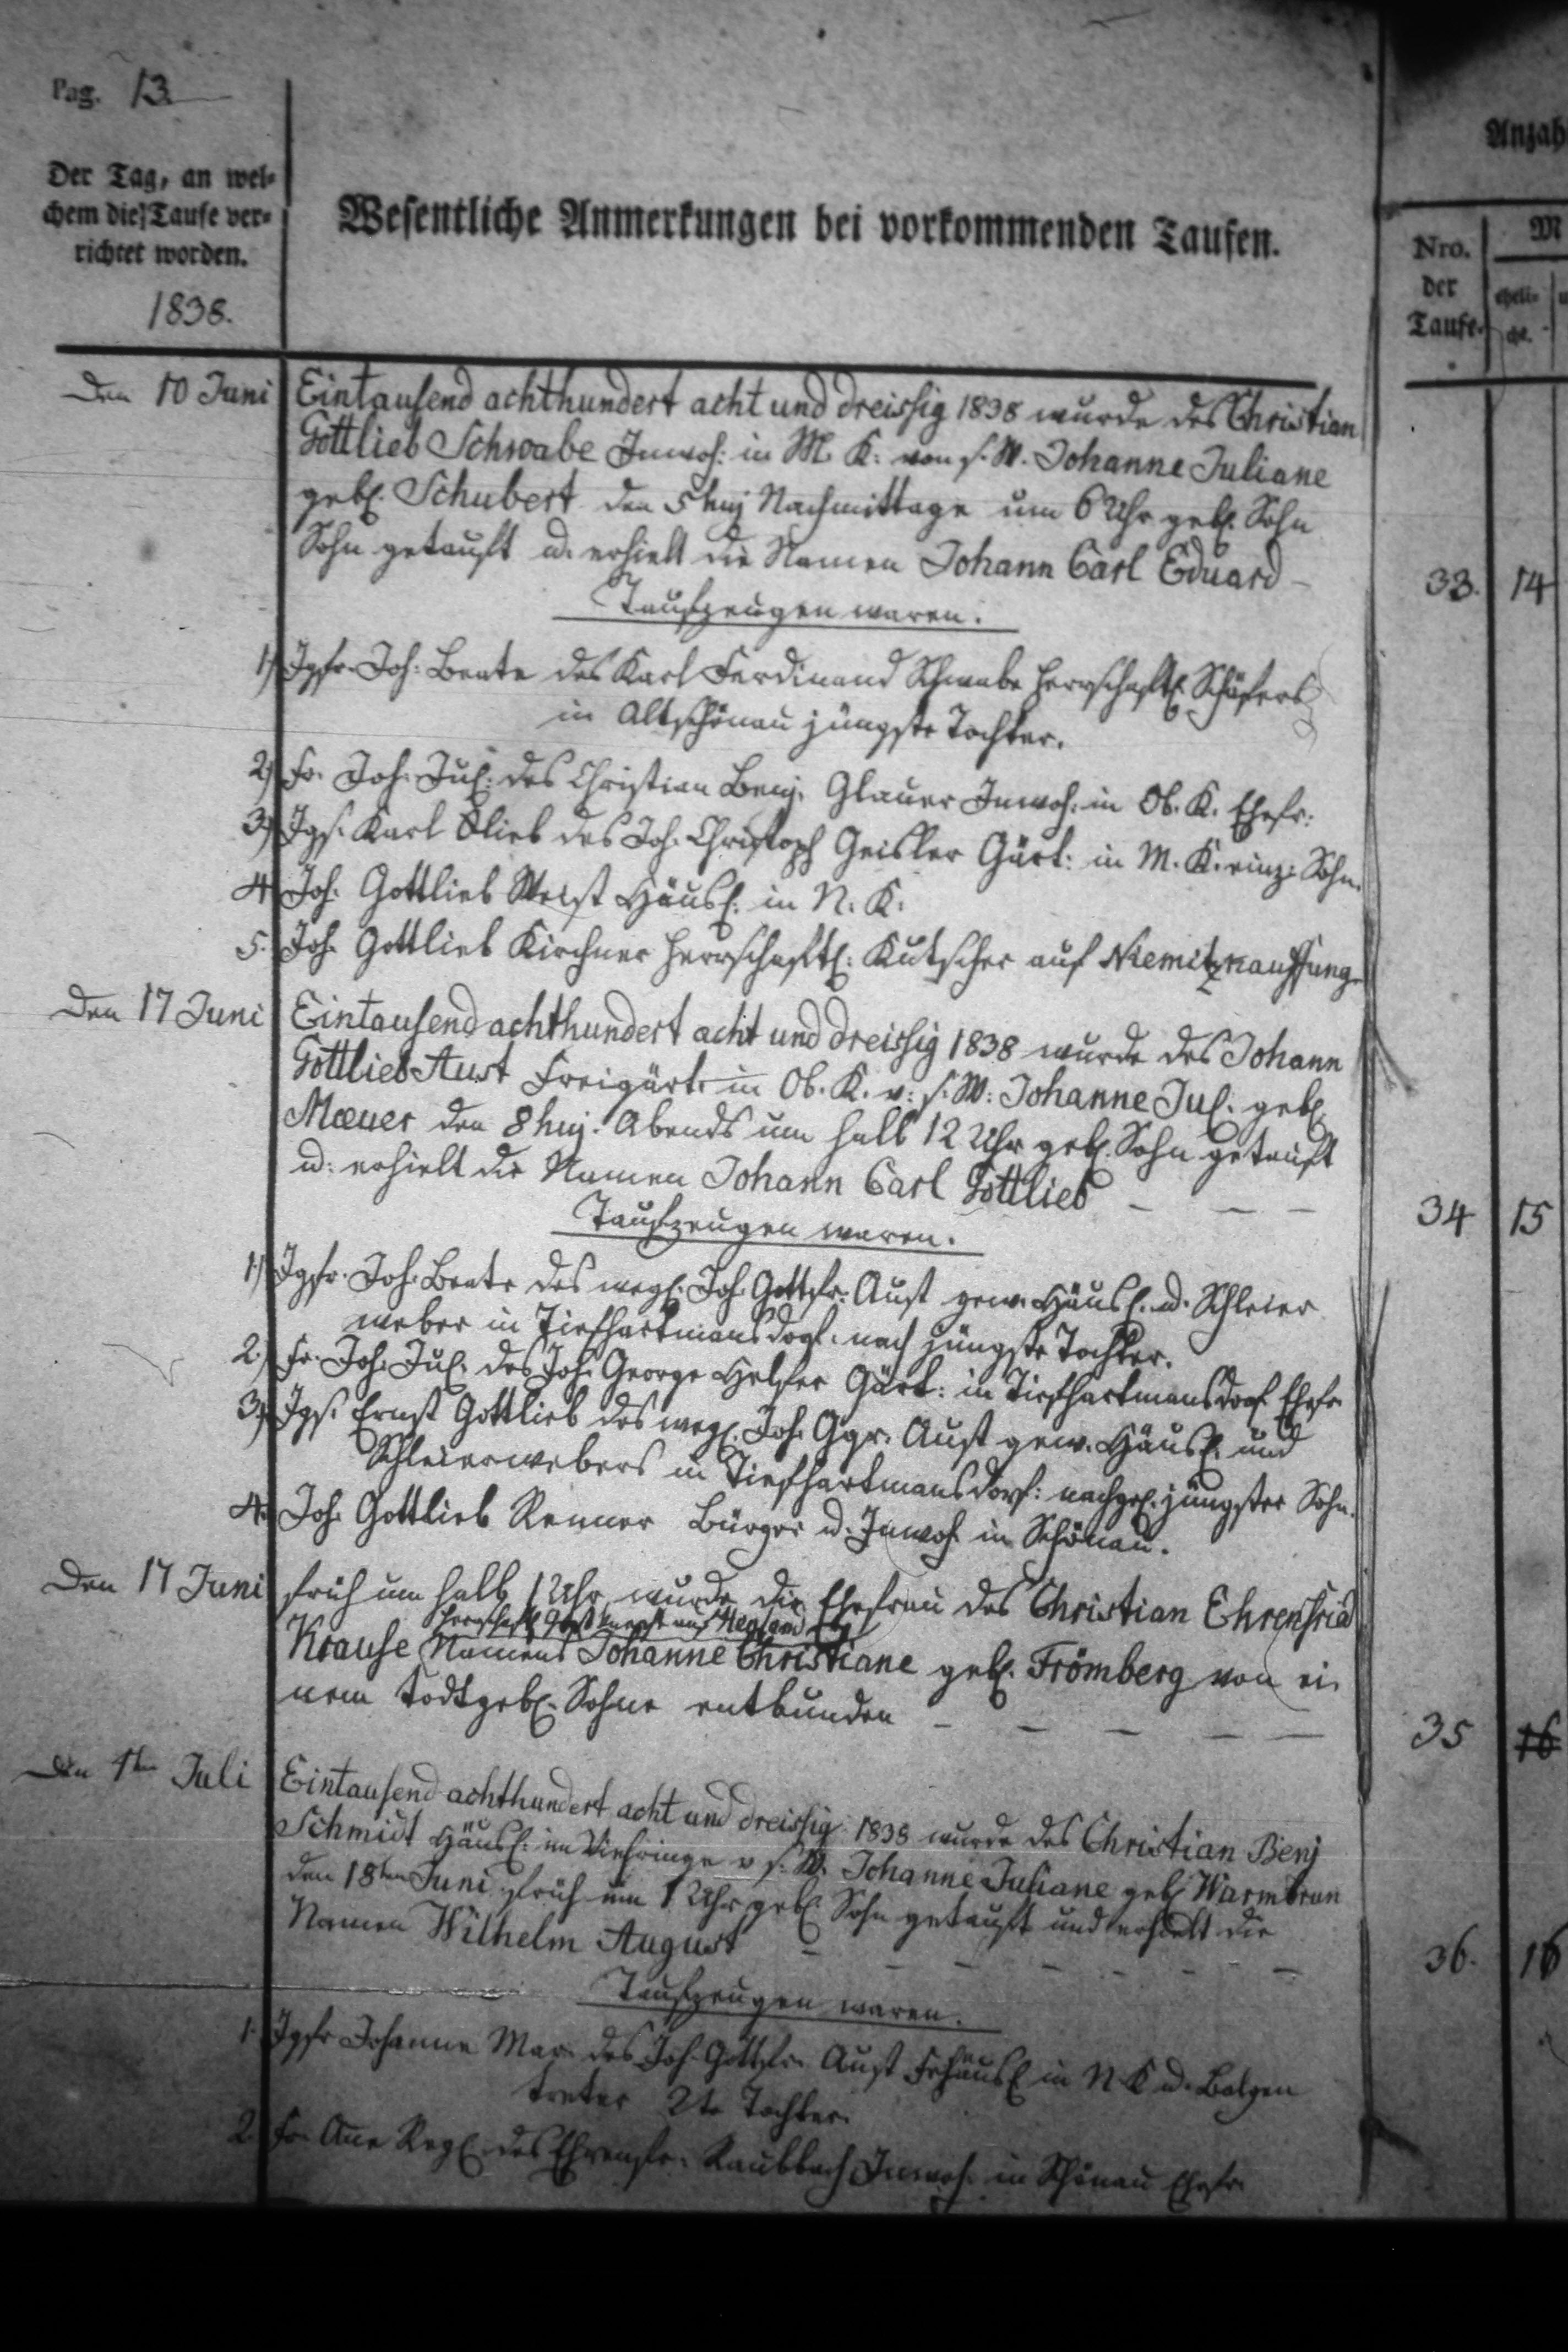 Pag. 13
Der Tag, an wel-
chem die Taufe ver-
richtet worden.
1838.
Wesentliche Anmerkungen bei vorkommenden Taufen.
Anzah
Nro.
der
Taufe.
M
eheli-
che.
Den 10 Juni Eintausend achthundert acht und dreissig 1838 wurde des Christian
Gottlieb Schwabe Inwoh: in M. K: von s. W. Johanne Juliane
gebl. Schubert den 5 huj Nachmittage um 6 Uhr gebl. Sohn
Sohn getauft u. erhielt die Namen Johann Carl Eduard – 33. 14
Taufzeugen waren.
1) Igfr. Joh: Beate des Karl Ferdinand Schwabe herrschaftl. Schäfers
in Altschönau jüngste Tochter.
2) Fr. Joh. Jul: des Christian Benj. Glauer Inwoh: in Ob. K. Ehefr:
3) Jgs. Karl Glieb des Joh. Christoph Geisler Gärt: in M. K. einz: Sohn.
4 Joh. Gottlieb Weist Häusl: in N. K.
5. Joh. Gottlieb Kirchner herrschaftl: Kutscher auf Niemitzkauffung
Den 17 Juni Eintausend achthundert acht und dreissig 1838 wurde des Johann
Gottlieb Aust Freigärt: in Ob. K. v: s. W: Johanne Jul. gebl.
den 8 huj. Abends um halb 12 Uhr gebl. Sohn getauft
u: erhielt die Namen Johann Carl Gottlieb – – – 34 15
Taufzeugen waren.
1) Igfr. Joh. Beate des wegl. Joh. Gottfr. Aust gew. Häusl. u. Schleier
weber in Tiefhartmansdorf: nach jüngste Tochter.
2) Fr. Joh. Jul. des Joh. George Helfer Gärt: in Tiefhartmansdorf Ehefr.
3) Jgs. Ernst Gottlieb des wegl. Joh. Ggr. Aust gew. Häusl. und
Schleierwebers in Tiefhartmansdorf: nachgel. jüngster Sohn.
4. Joh. Gottlieb Renner Bürger u. Inwoh. in Schönau.
Den 17 Juni früh um halb 1 Uhr wurde die Ehefrau des Christian Ehrenfried
herrschaftl.
Krause Namens Johanne Christiane gebl. Frömberg von ei
nem todtgebl. Sohne entbunden – – – – – 35 16
Den 1ten Juli Eintausend achthundert acht und dreissig 1838 wurde des Christian Benj
Schmidt Häusl: im Viehringe v s. W. Johanne Juliane gebl Warmbrun
den 18ten Juni früh um 1 Uhr gebl. Sohn getauft und erhielt die
Namen Wilhelm August – – – – – – – 36. 16
Taufzeugen waren.
1. Igfr Johanne Mar. des Joh. Gottfr. Aust Frhäusl in N. K u. Balgen
treter 2te Tochter.
2. Fr. des Ehrenfr. Raubbach Inwoh. in Schönau Ehefr.